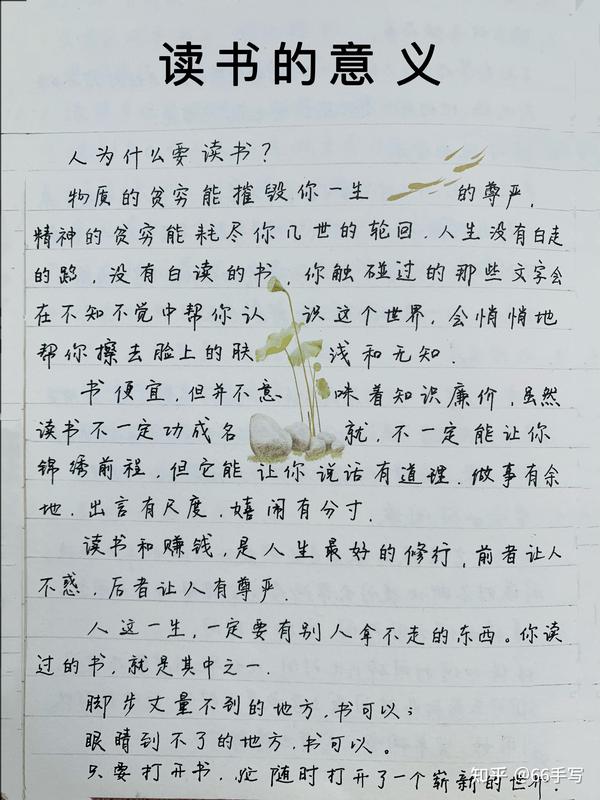 读书的意义
人为什么要读书？
物质的贫穷能摧毁你一生的尊严，
精神的贫穷能耗尽你几世的轮回．人生没有白走
的路，没有白读的书，你触碰过的那些文字会
在不知不觉中帮你认识这个世界，会悄悄地
帮你擦去脸上的肤浅和无知．
书便宜，但并不意味着知识廉价，虽然
读书不一定功成名就，不一定能让你
锦绣前程，但它能让你说话有道理．做事有余
地．出言有尺度，嬉闹有分寸．
读书和赚钱，是人生最好的修行，前者让人
不惑，后者让人有尊严．
人这一生，一定要有别人拿不走的东西。你读
过的书，就是其中之一．
脚步丈量不到的地方，书可以；
眼睛到不了的地方，书可以。
只要打开书，随时打开了一个崭新的世界．
知乎 @66手写